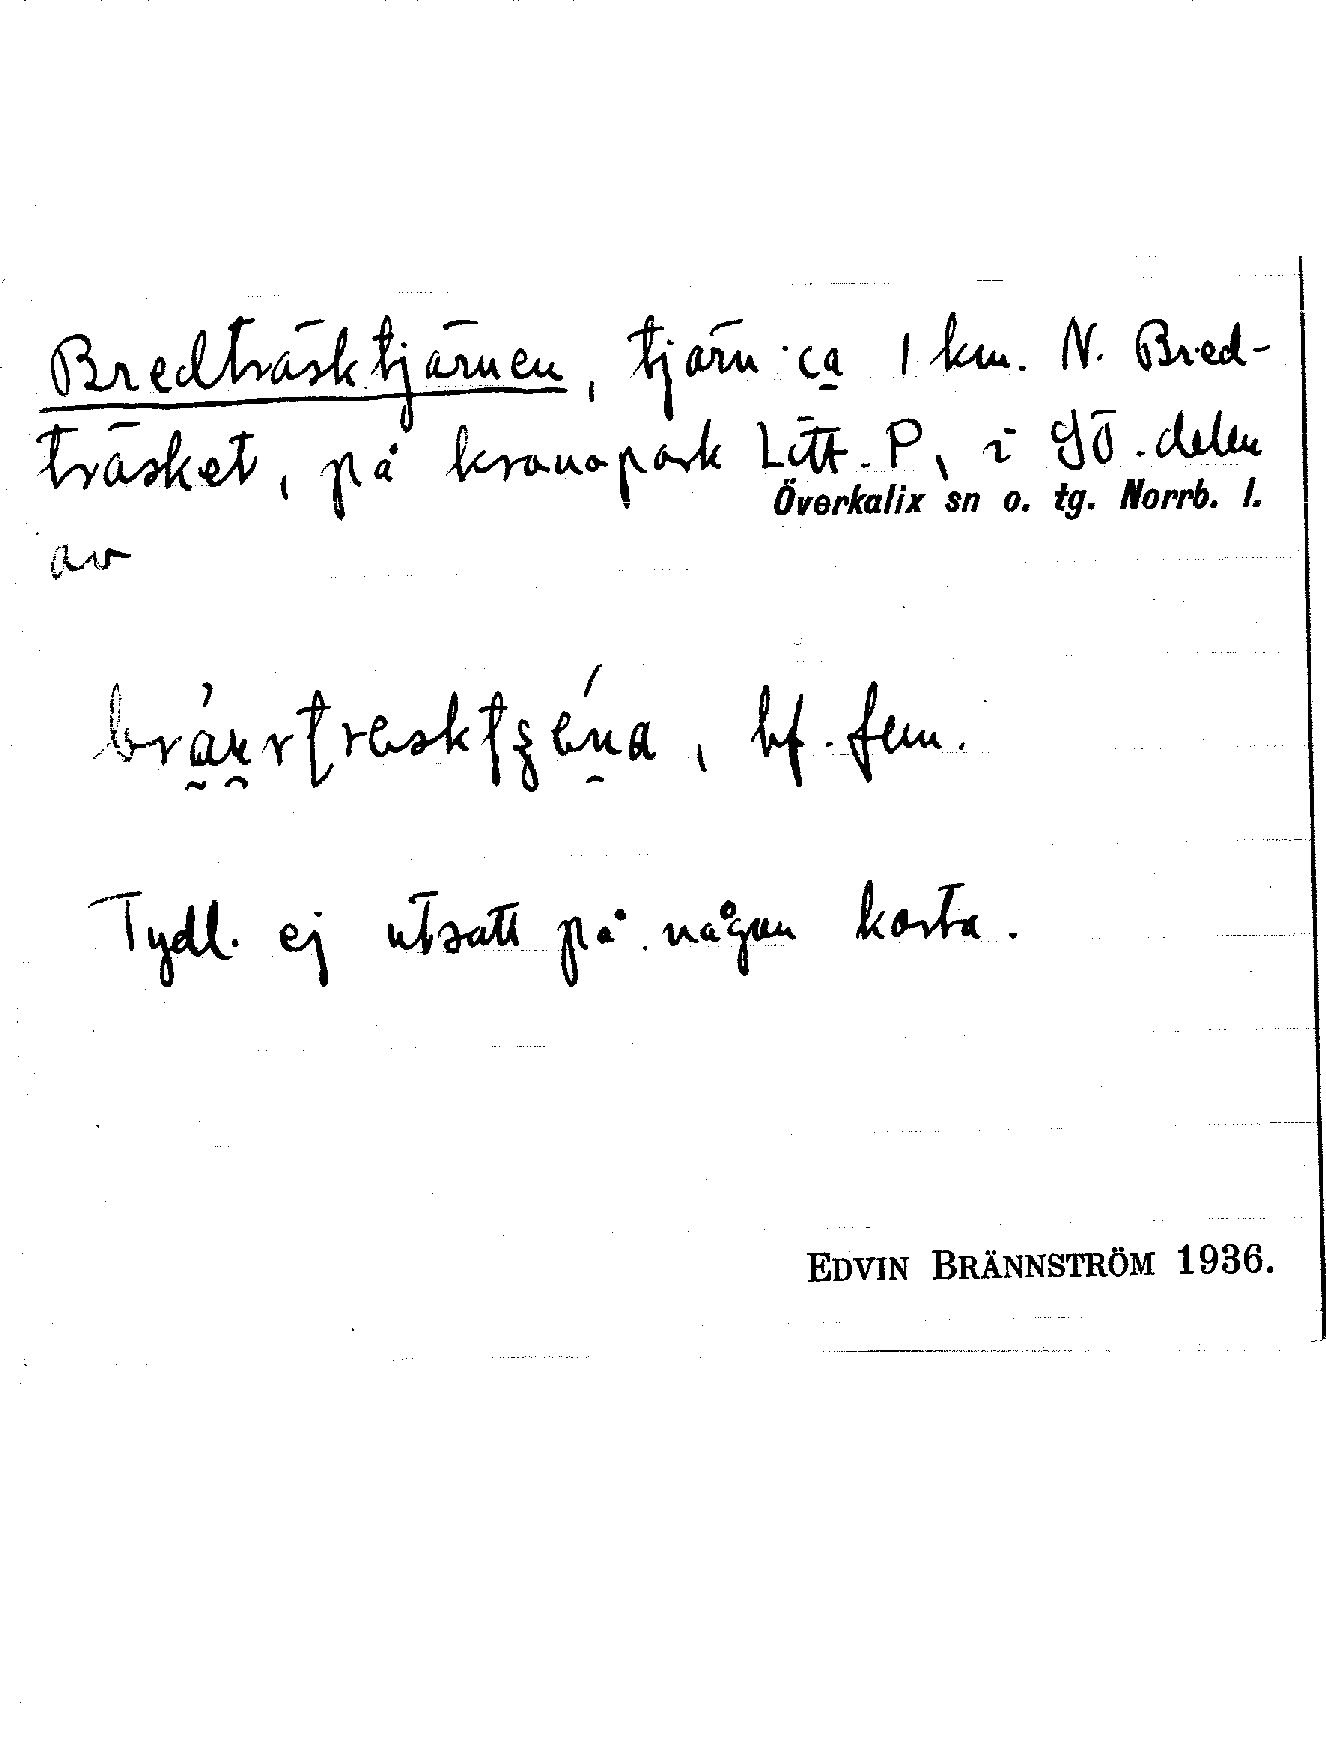 Bredträsktjärnen, tjärn ca 1 km. N. Bred-
träsket, på kronopark Litt. P, i SÖ. delen
Överkalix sn o. tg. Norrb. l.
av
bf. fem.
Tydl. ej utsatt på någon karta.
EDVIN BRÄNNSTRÖM 1936.